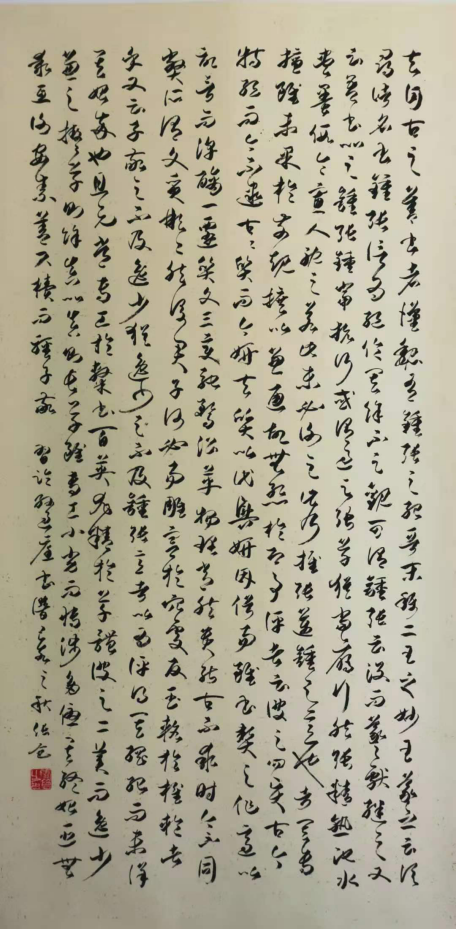 夫自古之善書者漢魏有鍾張之絕晉末稱二王之妙王羲之云頃
尋諸名書鍾張信為絕倫其餘不足觀可謂鍾張云沒而羲獻繼之又
云吾書比之鍾張鍾當抗行或謂過之張草猶當雁行然張精熟池水
盡墨假令寡人耽之若此未必謝之此乃推張邁鍾之意也考其專
擅雖未果於前規摭以兼通故無慚於即事評者云彼之四賢古今
特絕而今不逮古古質而今妍夫質以代興妍因俗易雖書契之作適以
記言而淳醨一遷質文三變馳騖沿革物理常然貴能古不乖時今不同
弊所謂文質彬彬然後君子何必易雕宮於穴處反玉輅於椎輪者
乎又云子敬之不及逸少猶逸少之不及鍾張意者以為評得其綱紀而未詳
其始卒也且元常專工於隸書百英尤精於草體彼之二美而逸少
兼之擬草則餘真比真則長草雖專工小劣而博涉多優總其終始匪無
乖互謝安素善尺牘而輕子敬 習臨孫過庭書譜之秋